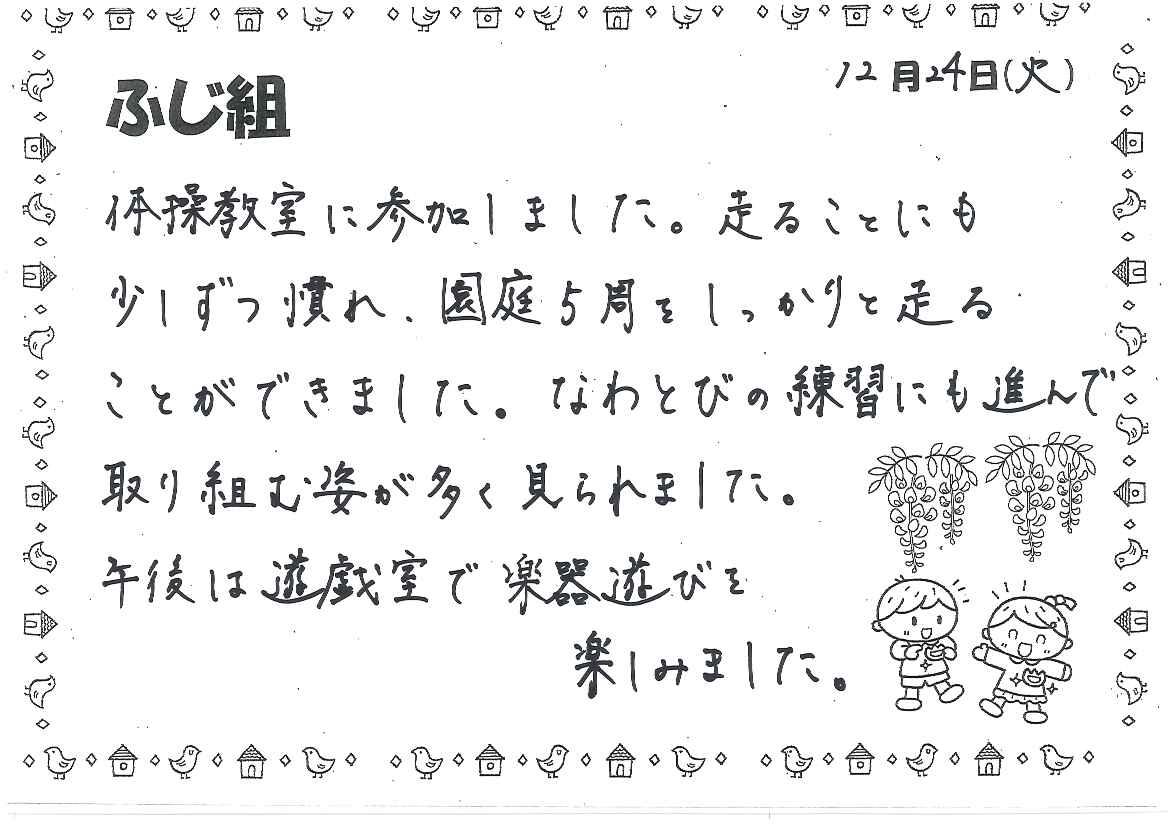 12月24日(火)
ふじ組
体操教室に参加しました。走ることにも
少しずつ慣れ、園庭5周をしっかりと走る
ことができました。なわとびの練習にも進んで
取り組む姿が多く見られました。
午後は遊戯室で楽器遊びを
楽しみました。